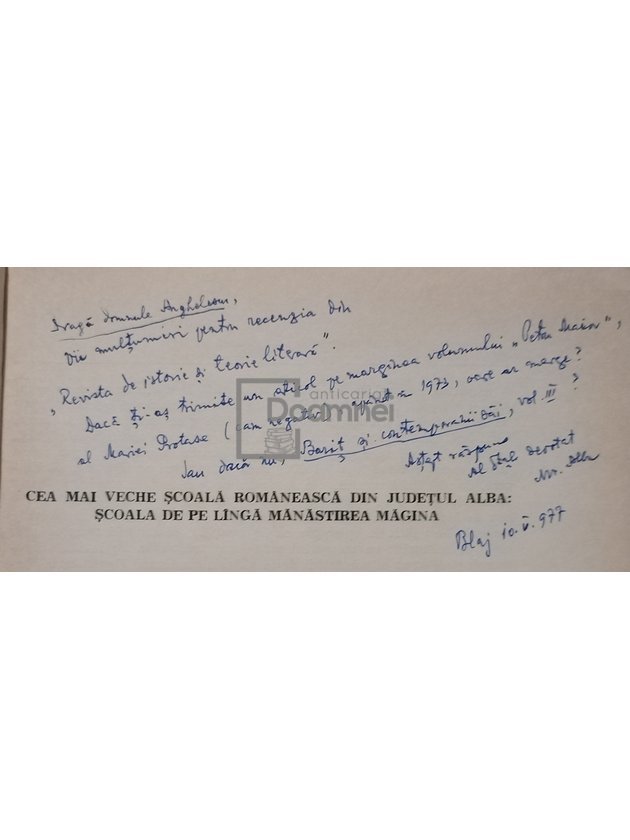 Dragă domnule Anghelescu,
Vii mulțumiri pentru recenzia din
„Revista de istorie și teorie literară".
Dacă ți-aș trimite un articol pe marginea volumului „Petru Maior",
al Mariei Protase (cam negativ), apărut în 1973, oare ar merge?
Sau dacă nu, Bariț și contemporanii săi, vol. III?
Aștept răspuns
Al Dtale devotat
anticariat
Doamnei
CEA MAI VECHE ȘCOALĂ ROMÂNEASCĂ DIN JUDEȚUL ALBA:
ȘCOALA DE PE LÎNGĂ MĂNĂSTIREA MĂGINA
Blaj 10.V.977